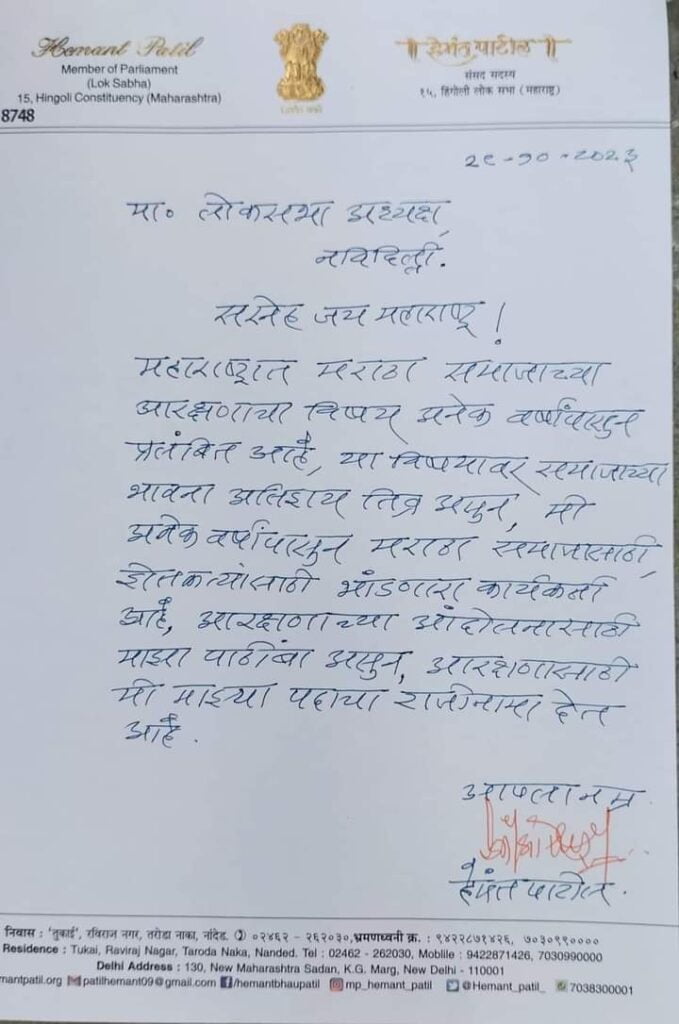 Hemant Patil
Member of Parliament
(Lok Sabha)
15, Hingoli Constituency (Maharashtra)
8748
सत्यमेव जयते
॥ हेमंत पाटील ॥
संसद सदस्य
१५, हिंगोली लोक सभा (महाराष्ट्र)
२९-१०-२०२३
मा. लोकसभा अध्यक्ष,
नविदिल्ली.
सस्नेह जय महाराष्ट्र !
महाराष्ट्रात मराठा समाजाच्या
आरक्षणाचा विषय अनेक वर्षांपासुन
प्रलंबित आहे, या विषयावर समाजाच्या
भावना अतिशय तिव्र असुन, मी
अनेक वर्षांपासुन मराठा समाजासाठी,
शेतकऱ्यांसाठी भांडणारा कार्यकर्ता
आहे, आरक्षणाच्या आंदोलनासाठी
माझा पाठींबा असुन, आरक्षणासाठी
मी माझ्या पदाचा राजीनामा देत
आहे.
आपला नम्र
हेमंत पाटील.
निवास : 'तुकाई', रविराज नगर, तरोडा नाका, नांदेड. ०२४६२ - २६२०३०,भ्रमणध्वनी क्र. : ९४२२८७१४२६, ७०३०९९००००
Residence : Tukai, Raviraj Nagar, Taroda Naka, Nanded. Tel : 02462 - 262030, Moblile : 9422871426, 7030990000
Delhi Address : 130, New Maharashtra Sadan, K.G. Marg, New Delhi - 110001
mantpatil.org patilhemant09@gmail.com /hemantbhaupatil mp_hemant_patil @Hemant_patil_ 7038300001